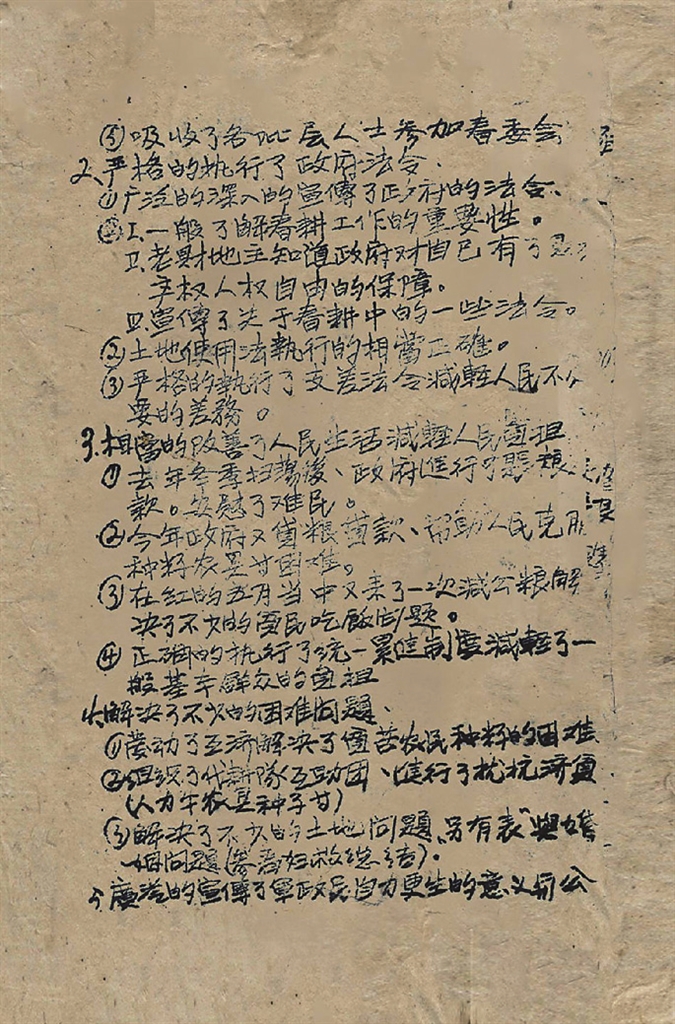 ⑤吸收了各阶层人士参加春委会
2、严格的执行了政府法令、
①广泛的深入的宣傳了政府的法令、
I.一般了解春耕工作的重要性。
II.老財地主知道政府对自己有了
主权人权自由的保障。
III.宣傳了关于春耕中的一些法令。
②土地使用法執行的相當正確。
③严格的執行了支差法令減輕人民不
要的差務。
3.相當的改善了人民生活減輕人民負担
①去年冬季扫蕩後、政府進行了賑粮
款。安慰了难民。
②今年政府又貸粮貸款、帮助人民克服
种籽农具廿困难。
③在红的五月当中又来了一次減公粮解
决了不少的貧民吃飯问题。
④正確的执行了统一累進制度減輕了一
般基本群众的負担
4.解决了不少的困难问题、
①發动了互济解决了貧苦农民种籽的困难
②组织了代耕隊互助团、進行了扰抗济貧
(人力牛农具种子廿)
③解决了不少的土地问题、另有表"與婚
姻问题(参看妇救總结)。
5.廣泛的宣傳了軍政民自力更生的意义